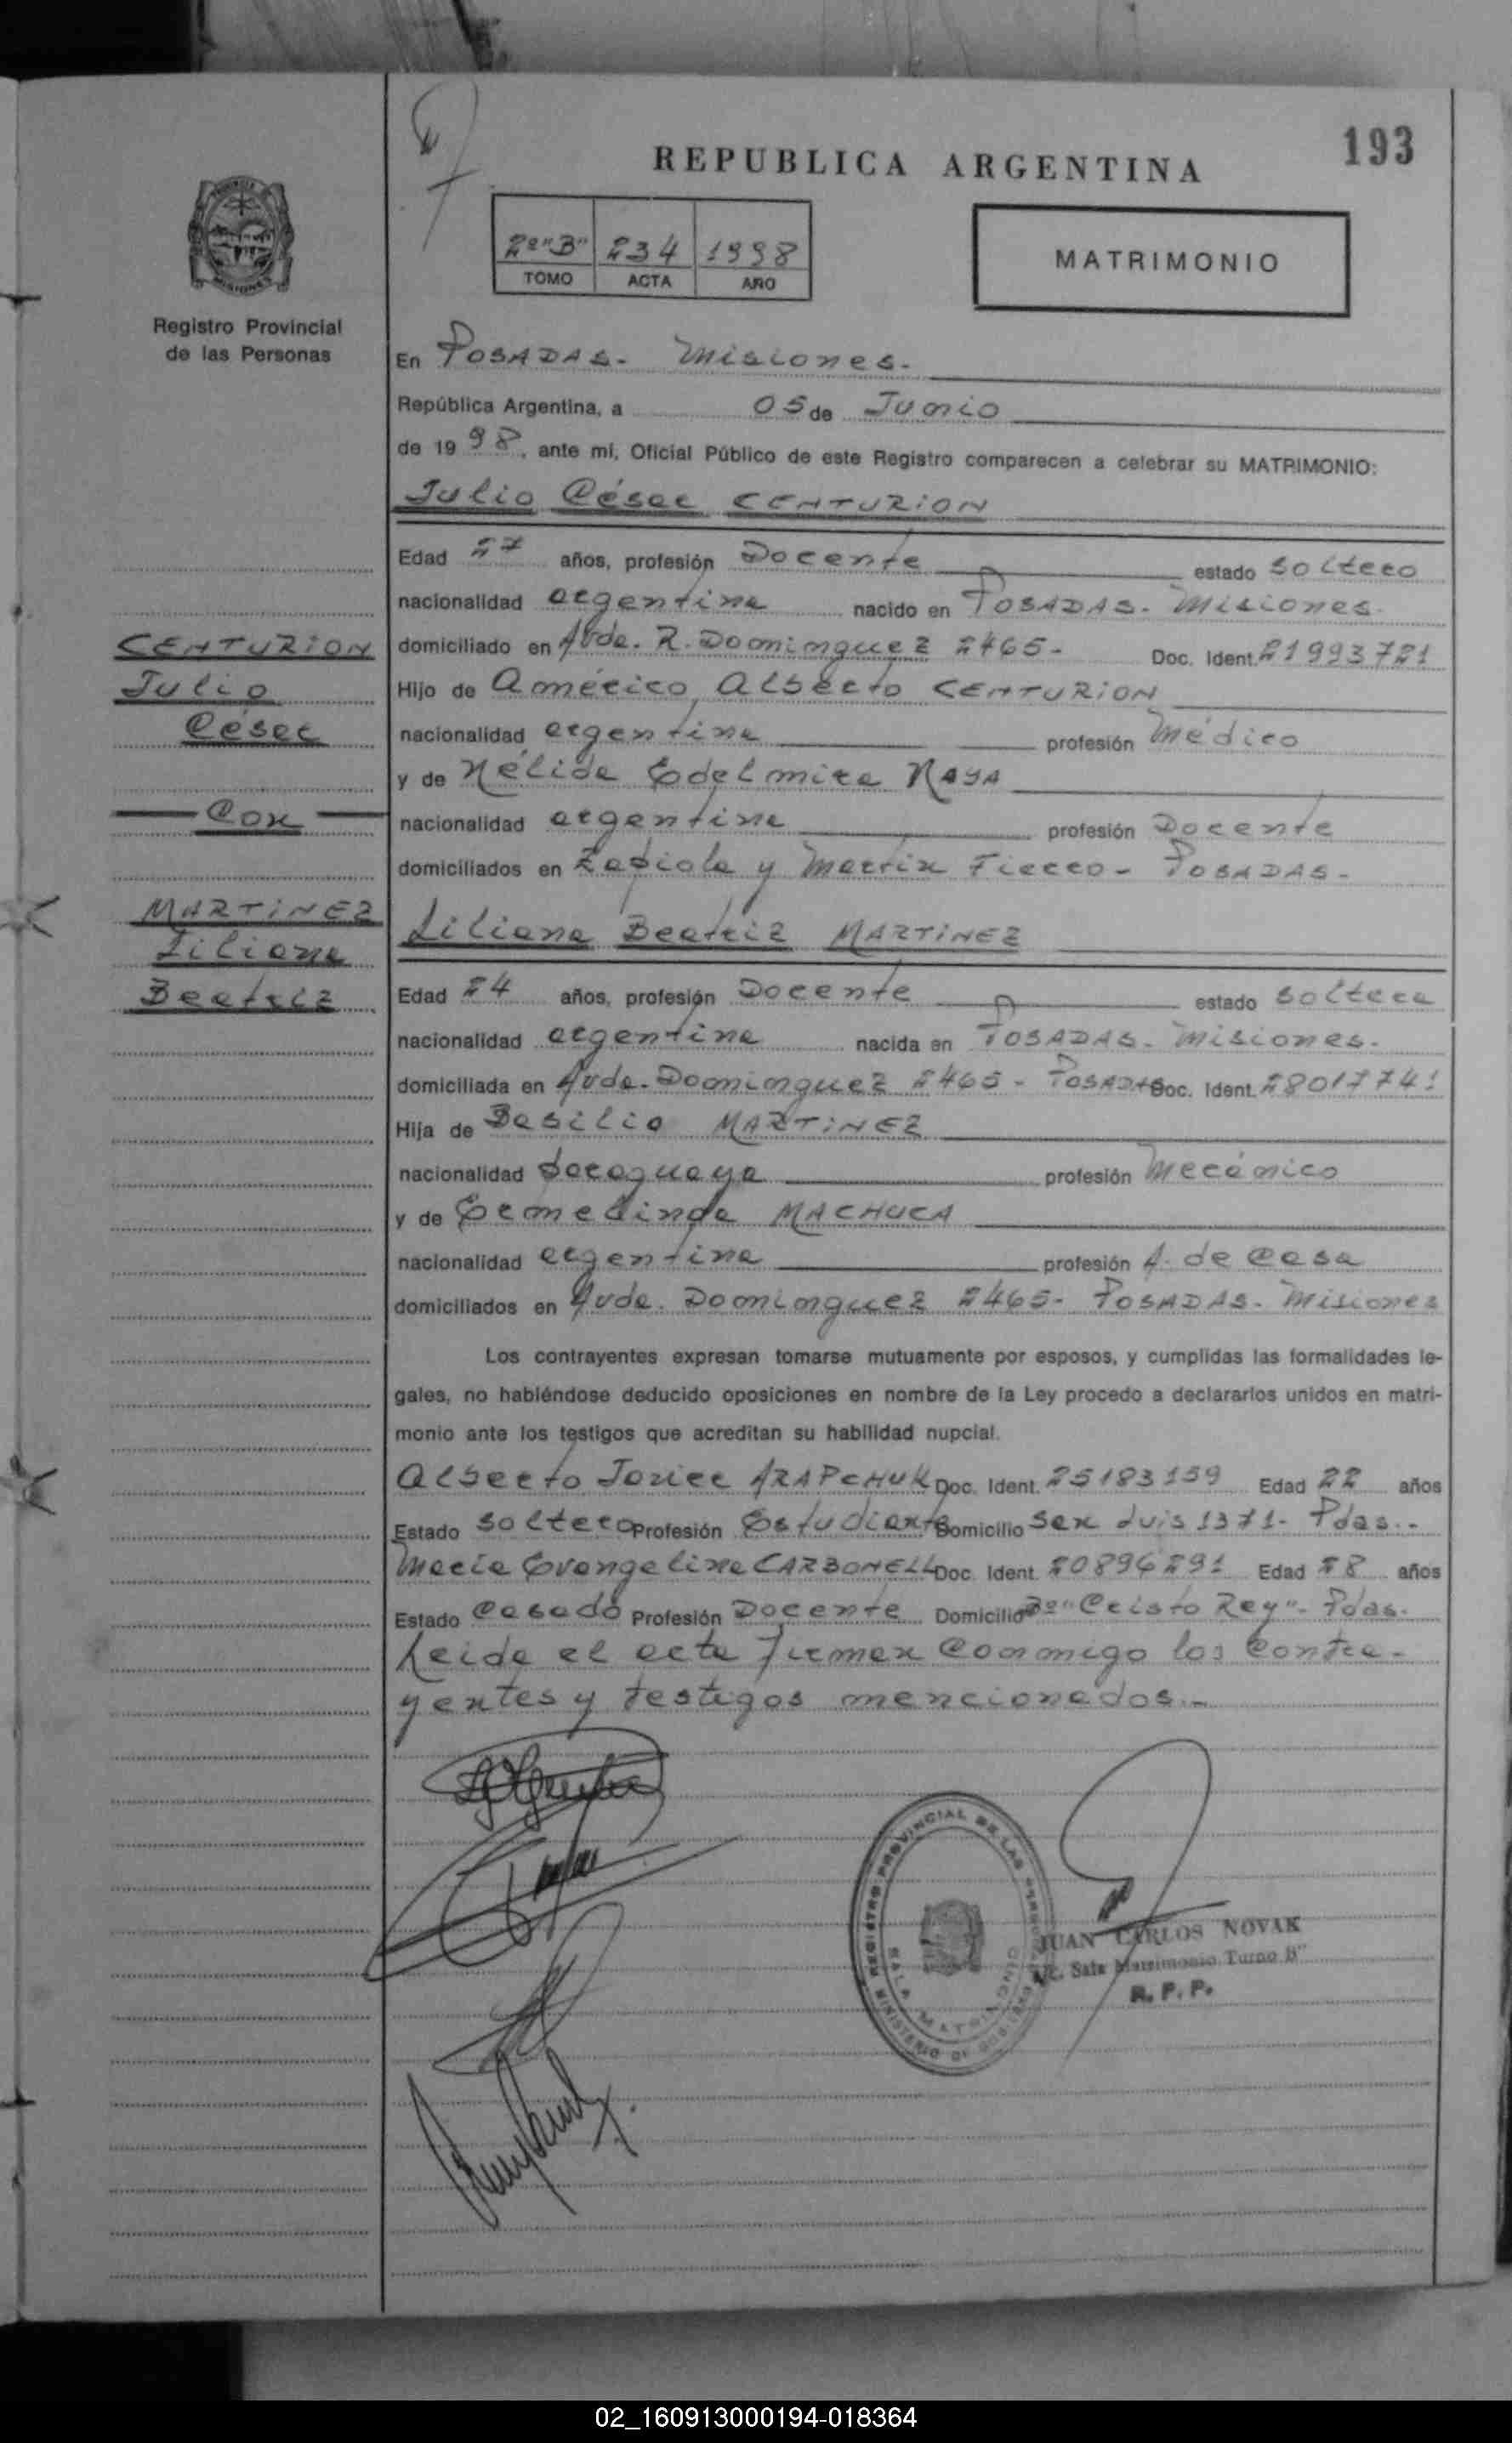 193
REPUBLICA ARGENTINA
2º"B" 234 1998
TOMO ACTA AÑO
MATRIMONIO
Registro Provincial
de las Personas
En POSADAS - Misiones.
República Argentina, a 05 de Junio
de 1998, ante mí, Oficial Público de este Registro comparecen a celebrar su MATRIMONIO:
Julio César CENTURION
Edad 27 años, profesión Docente estado soltero
nacionalidad argentina nacido en POSADAS - Misiones.
domiciliado en Avda. R. Dominguez 2465 - Doc. Ident. 21993721
Hijo de Américo Alberto CENTURION
nacionalidad argentina profesión Médico
y de Nélida Edelmira RAYA
nacionalidad argentina profesión Docente
domiciliados en Zapiola y Martin Fierro - POSADAS -
Liliana Beatriz MARTINEZ
Edad 24 años, profesión Docente estado soltera
nacionalidad argentina nacida en POSADAS - Misiones.
domiciliada en Avda. Dominguez 2465 - POSADAS Doc. Ident. 28017741
Hija de Basilio MARTINEZ
nacionalidad paraguaya profesión Mecánico
y de Ermelinda MACHUCA
nacionalidad argentina profesión A. de Casa
domiciliados en Avda. Dominguez 2465 - POSADAS - Misiones
Los contrayentes expresan tomarse mutuamente por esposos, y cumplidas las formalidades le-
gales, no habiéndose deducido oposiciones en nombre de la Ley procedo a declararlos unidos en matri-
monio ante los testigos que acreditan su habilidad nupcial.
Alberto Javier ARAPCHUK Doc. Ident. 25183159 Edad 22 años
Estado soltero Profesión Estudiante Domicilio San Luis 1371 - Pdas. -
María Evangelina CARBONELL Doc. Ident. 20896291 Edad 28 años
Estado Casado Profesión Docente Domicilio Bº "Cristo Rey" - Pdas.
Leida el acta firman conmigo los contra-
yentes y testigos mencionados. -
CENTURION
Julio
César
Con
MARTINEZ
Liliana
Beatriz
REGISTRO PROVINCIAL DE LAS PERSONAS
SALA MATRIMONIO
MINISTERIO DE GOBIERNO
JUAN CARLOS NOVAK
A/C. Sala Matrimonio Turno B"
R. P. P.
02_160913000194-018364